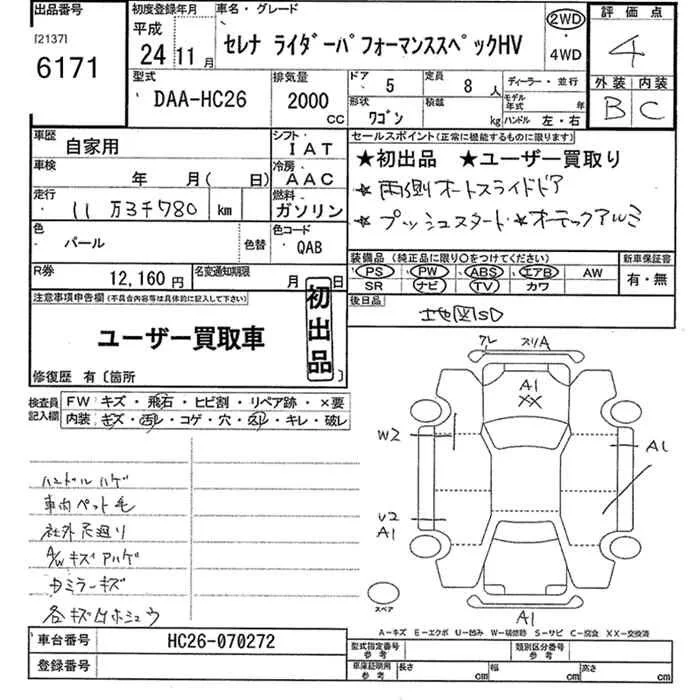 出品番号
[2137]
6171
初度登録年月
平成
24 11月
車名・グレード
セレナ ライダーパフォーマンススペックHV
2WD
・
4WD
評価点
4
外装 内装
B C
型式
DAA-HC26
排気量
2000
CC
ドア 5
定員 8 人
形状 ワゴン
積載 kg
ディーラー・並行
モデル年式 年
ハンドル 左・右
車歴 自家用
シフト IAT
車検 年 月( 日)
冷房 AAC
走行 11万3千780 km
燃料 ガソリン
色 パール
色替
色コード QAB
R券 12,160円
名変通知期限 月 日
セールスポイント(正常に機能するものに限ります)
★初出品 ★ユーザー買取り
★両側オートスライドドア
★プッシュスタート★オーテックアルミ
装備品(純正品に限り○をつけてください)
PS PW ABS エアB AW
SR ナビ TV カワ
新車保証書
有・無
後日品
地図SD
注意事項申告欄(不具合内容等は具体的に記入して下さい)
ユーザー買取車
初出品
修復歴 有〔箇所 〕
検査員記入欄
FW キズ・飛石・ヒビ割・リペア跡・×要
内装 キズ・汚レ・コゲ・穴・凹・キレ・破レ
ハンドルハゲ
車内ペット毛
社外足廻り
A/Wキズアハゲ
ミラーキズ
各キズ凹ホシュウ
車台番号 HC26-070272
登録番号
グレ スリA
A1
XX
W2
A1
U2
A1
A1
スペア
A-キズ E-エクボ U-凹み W-補修跡 S-サビ C-腐食 XX-交換済
型式指定番号
参考
類別区分番号
参考
車庫証明用
参考
長さ cm
幅 cm
高さ cm